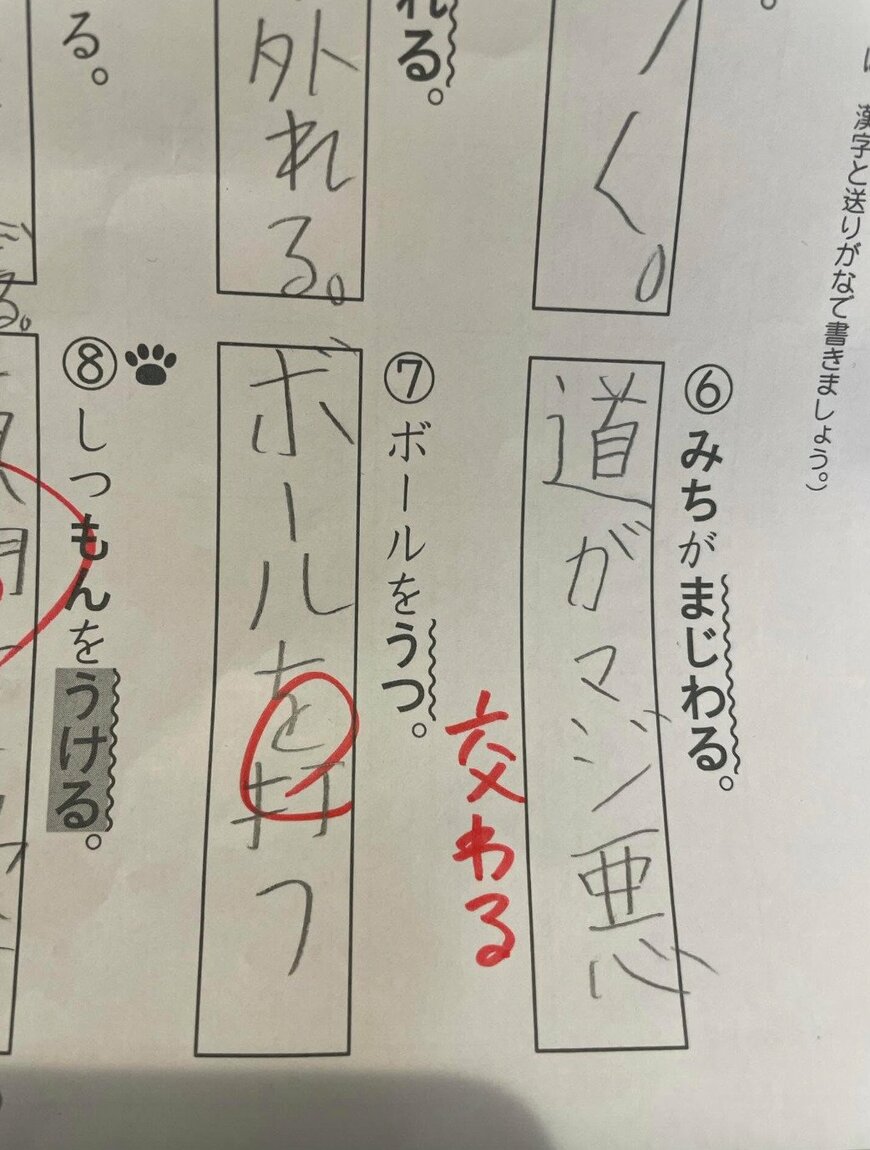 漢字と送りがなで書きましょう。）
く。
⑥ みちがまじわる。
道がマジ悪
交わる
れる。
外れる。
⑦ ボールをうつ。
ボールを打つ
る。
る。
⑧ しつもんをうける。